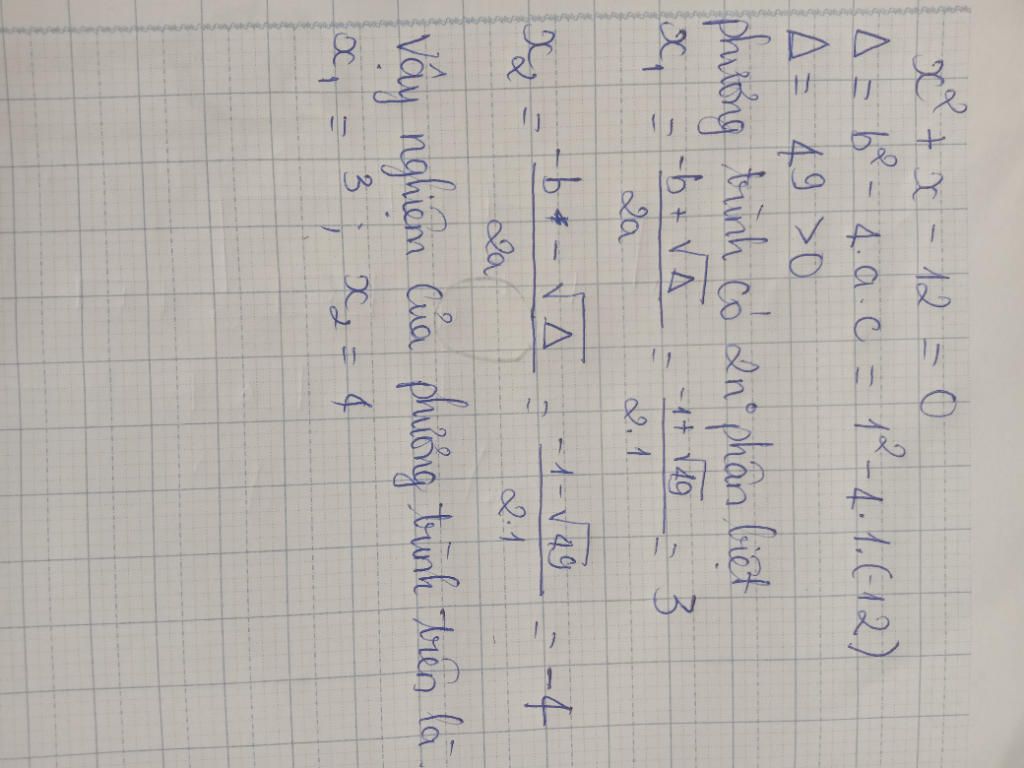 x² + x - 12 = 0
Δ = b² - 4.a.c = 1² - 4.1.(-12)
Δ = 49 > 0
phương trình có 2 n° phân biệt
x₁ = (-b + √Δ)/2a = (-1 + √49)/2.1 = 3
x₂ = (-b - √Δ)/2a = (-1 - √49)/2.1 = -4
Vậy nghiệm của phương trình trên là
x₁ = 3 ; x₂ = 4